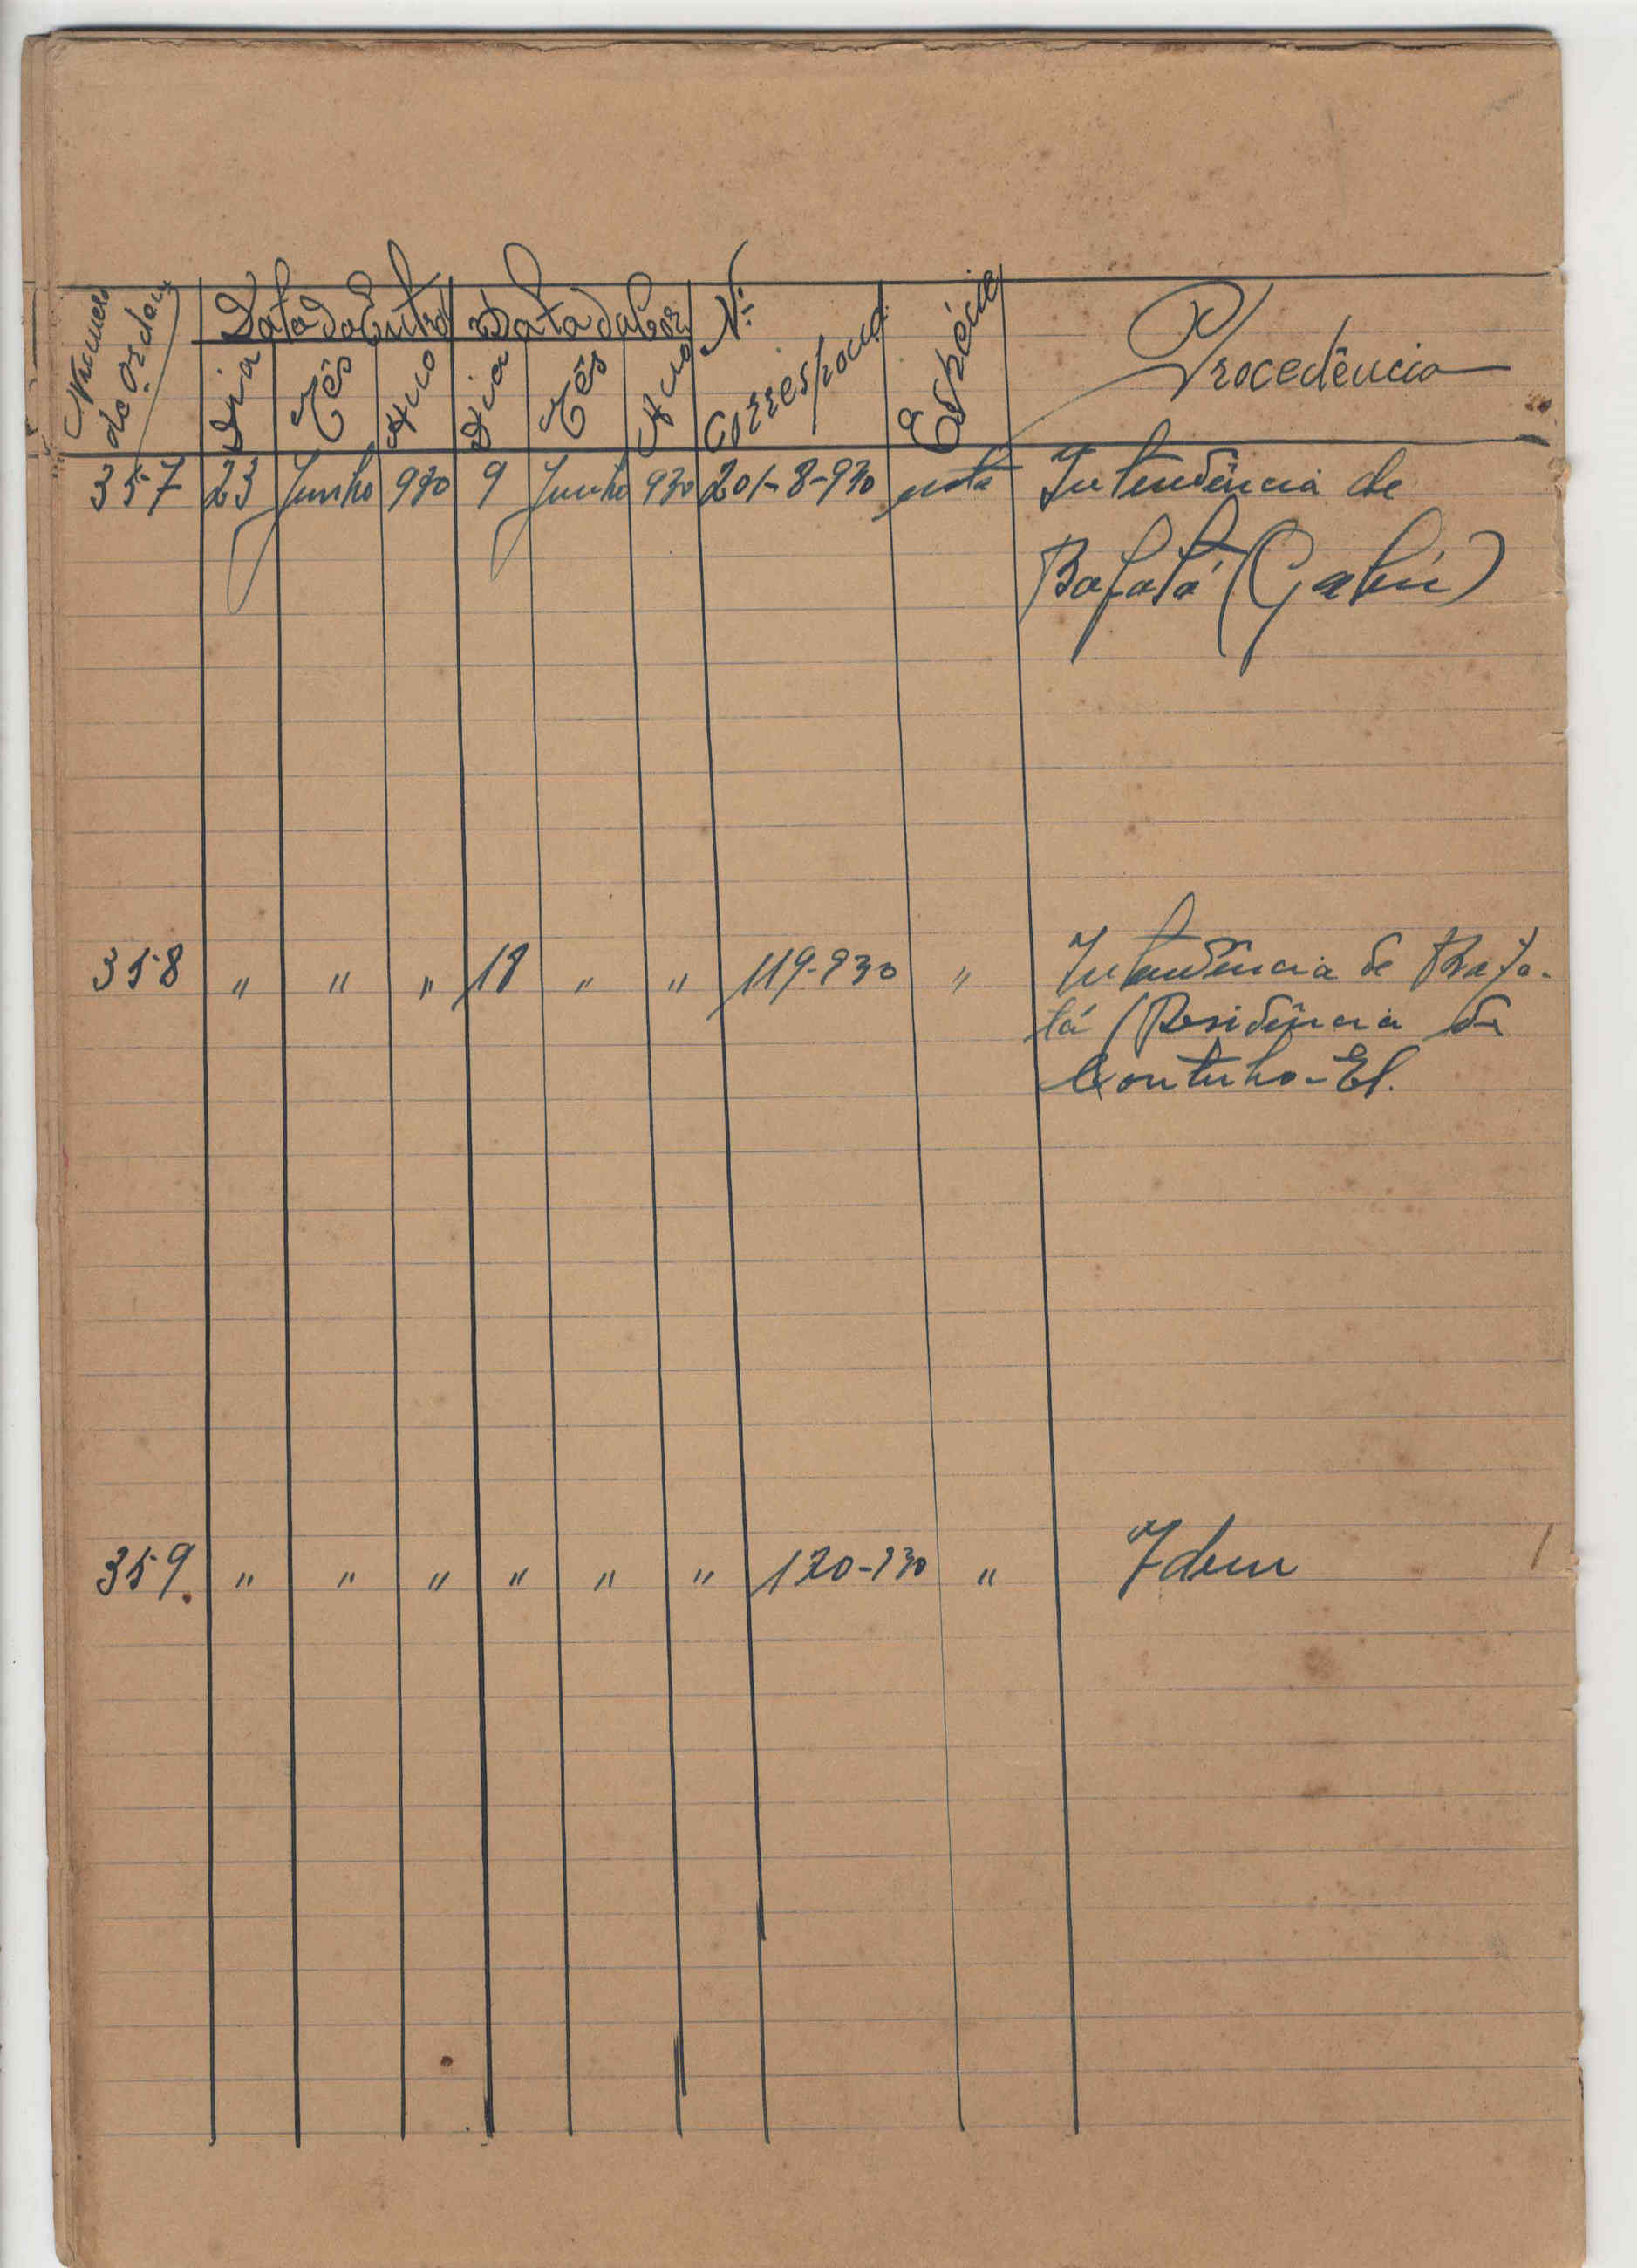 Numero de Ordem Data da Entrª Data da Cor. Nº Correspond. Espécie Procedência
Dia Mês Ano Dia Mês Ano
357 23 Junho 930 9 Junho 930 201-8-930 nota Intendência de
Bafatá (Gabú)
358 " " " 18 " " 119-930 " Intendência de Bafa-
tá (Residência de
Contuho-El.
359 " " " " " " 120-930 " Idem